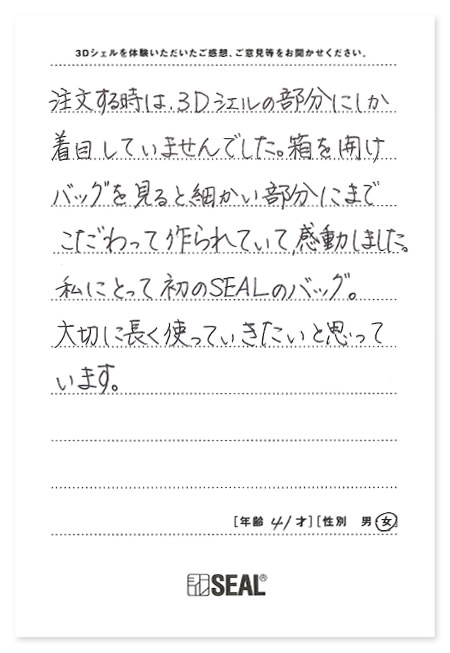 3Dシェルを体験いただいたご感想、ご意見等をお聞かせください。
注文する時は、3Dシェルの部分にしか
着目していませんでした。箱を開け
バッグを見ると細かい部分にまで
こだわって作られていて、感動しました。
私にとって初のSEALのバッグ。
大切に長く使っていきたいと思って
います。
[年齢 41才][性別 男 女]
SEAL®